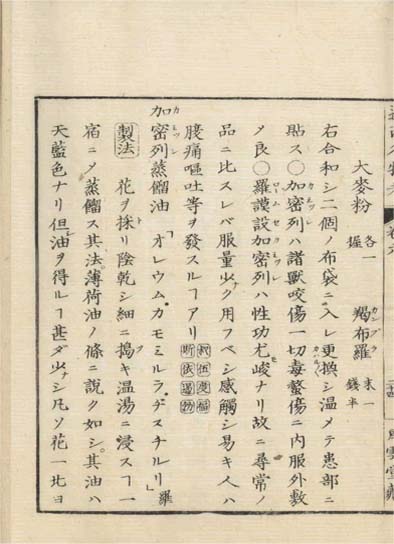 大麥粉 各一握 羯布羅 カンプラ 末一錢半
右合和シ二個ノ布袋ニ入レ更換シ温メテ患部ニ
貼ス〇加密列ハ諸獸咬傷一切毒螫傷ニ内服外敷
〆良〇羅謨設加密列ハ性功尤峻ナリ故ニ尋常ノ
品ニ比スレバ服量少ナク用フベシ感觸シ易キ人ハ
腹痛嘔吐等ヲ發スルヿアリ
加密列蒸餾油 「オレウム・カモミルラ・デスチルリ」羅
製法 花ヲ採リ陰乾シ細ニ搗キ温湯ニ浸スヿ一
宿ニ〆蒸餾ス其法薄荷油ノ條ニ說ク如シ其油ハ
天藍色ナリ但シ油ヲ得ルヿ甚ダ少ナシ凡ソ花一北ヨ